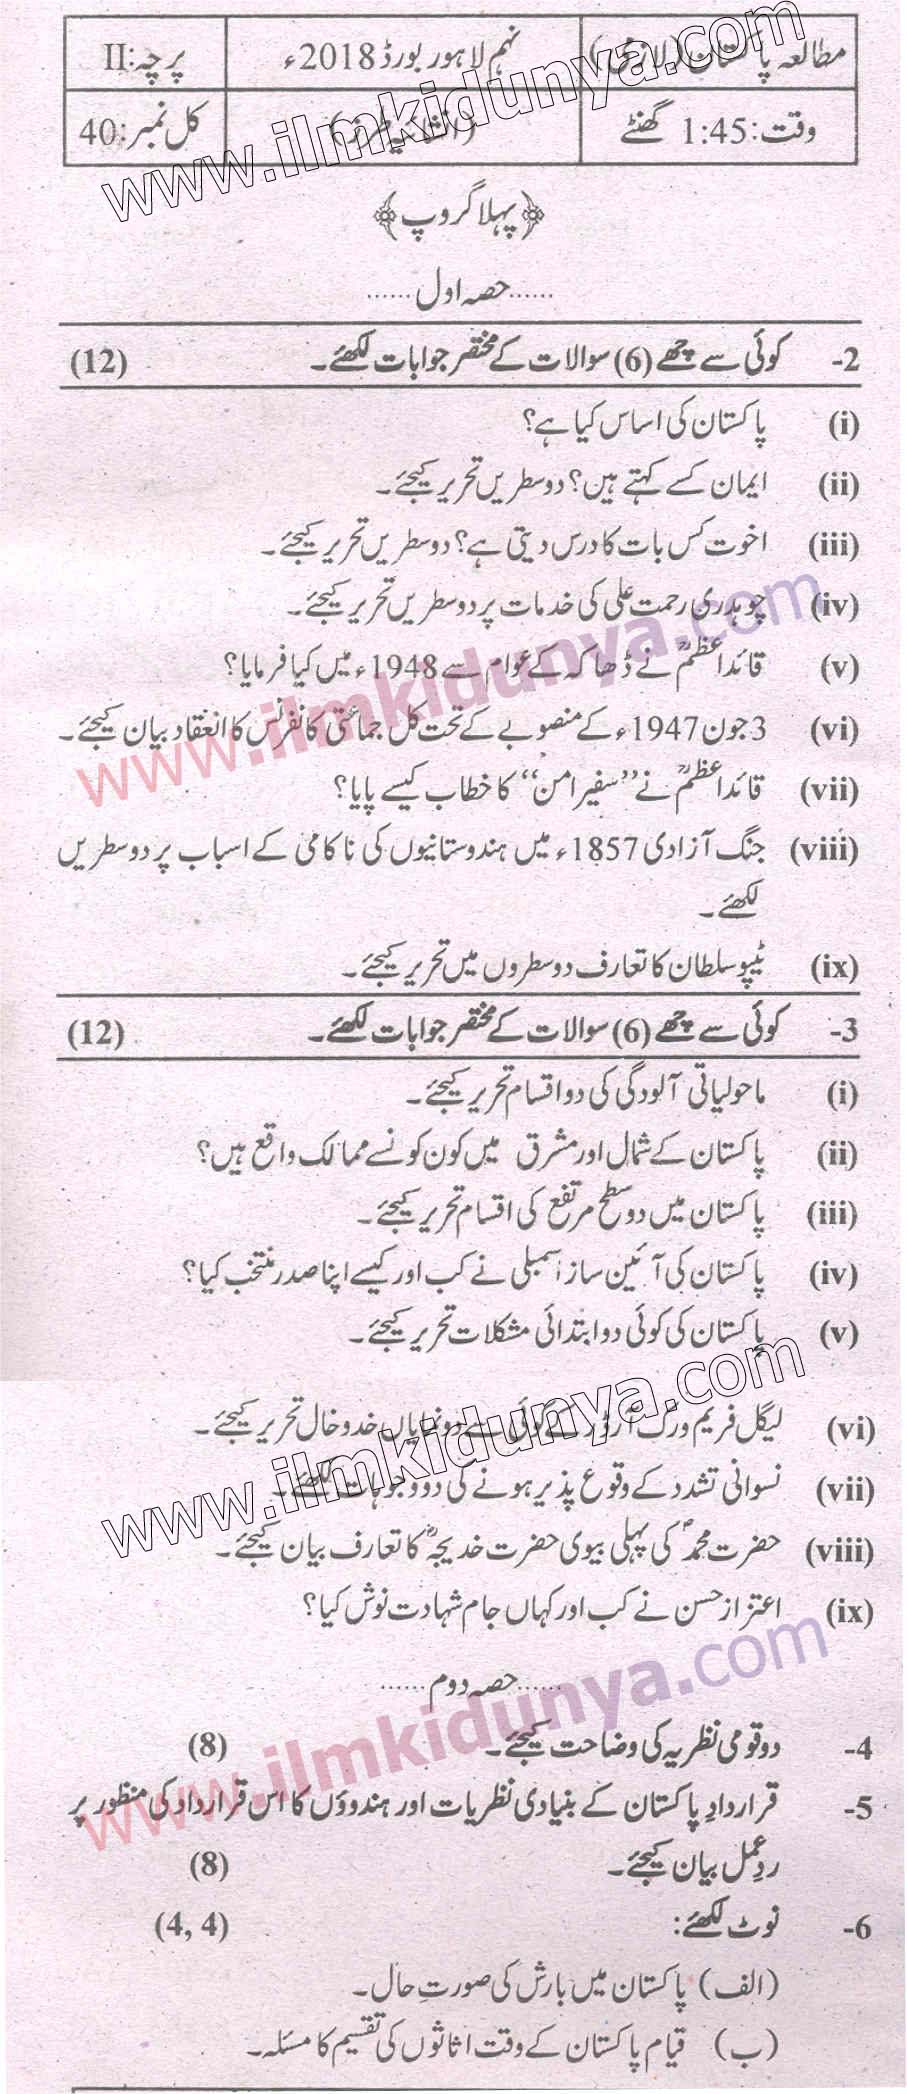 مطالعہ پاکستان (لازمی) نہم لاہور بورڈ 2018ء پرچہ: II
وقت: 1:45 گھنٹے (انشائیہ طرز) کل نمبر: 40
www.ilmkidunya.com
﴿پہلا گروپ﴾
......حصہ اول......
2- کوئی سے چھے (6) سوالات کے مختصر جوابات لکھئے۔ (12)
(i) پاکستان کی اساس کیا ہے؟
(ii) ایمان کسے کہتے ہیں؟ دو سطریں تحریر کیجئے۔
(iii) اخوت کس بات کا درس دیتی ہے؟ دو سطریں تحریر کیجئے۔
(iv) چوہدری رحمت علی کی خدمات پر دو سطریں تحریر کیجئے۔
(v) قائداعظمؒ نے ڈھاکہ کے عوام سے 1948ء میں کیا فرمایا؟
www.ilmkidunya.com
(vi) 3 جون 1947ء کے منصوبے کے تحت کل جماعتی کانفرنس کا انعقاد بیان کیجئے۔
(vii) قائداعظمؒ نے ”سفیر امن“ کا خطاب کیسے پایا؟
(viii) جنگ آزادی 1857ء میں ہندوستانیوں کی ناکامی کے اسباب پر دو سطریں
لکھئے۔
(ix) ٹیپو سلطان کا تعارف دو سطروں میں تحریر کیجئے۔
3- کوئی سے چھے (6) سوالات کے مختصر جوابات لکھئے۔ (12)
(i) ماحولیاتی آلودگی کی دو اقسام تحریر کیجئے۔
(ii) پاکستان کے شمال اور مشرق میں کون کونسے ممالک واقع ہیں؟
(iii) پاکستان میں دو سطح مرتفع کی اقسام تحریر کیجئے۔
(iv) پاکستان کی آئین ساز اسمبلی نے کب اور کیسے اپنا صدر منتخب کیا؟
(v) پاکستان کی کوئی دو ابتدائی مشکلات تحریر کیجئے۔
(vi) لیگل فریم ورک آرڈر کے کوئی سے دو نمایاں خدوخال تحریر کیجئے۔
www.ilmkidunya.com
(vii) نسوانی تشدد کے وقوع پذیر ہونے کی دو وجوہات لکھئے۔
(viii) حضرت محمدؐ کی پہلی بیوی حضرت خدیجہؓ کا تعارف بیان کیجئے۔
(ix) اعتزاز حسن نے کب اور کہاں جام شہادت نوش کیا؟
......حصہ دوم......
www.ilmkidunya.com
4- دو قومی نظریہ کی وضاحت کیجئے۔ (8)
5- قراردادِ پاکستان کے بنیادی نظریات اور ہندوؤں کا اس قرارداد کی منظور پر
ردِعمل بیان کیجئے۔ (8)
6- نوٹ لکھئے: (4, 4)
(الف) پاکستان میں بارش کی صورتِ حال۔
(ب) قیام پاکستان کے وقت اثاثوں کی تقسیم کا مسئلہ۔